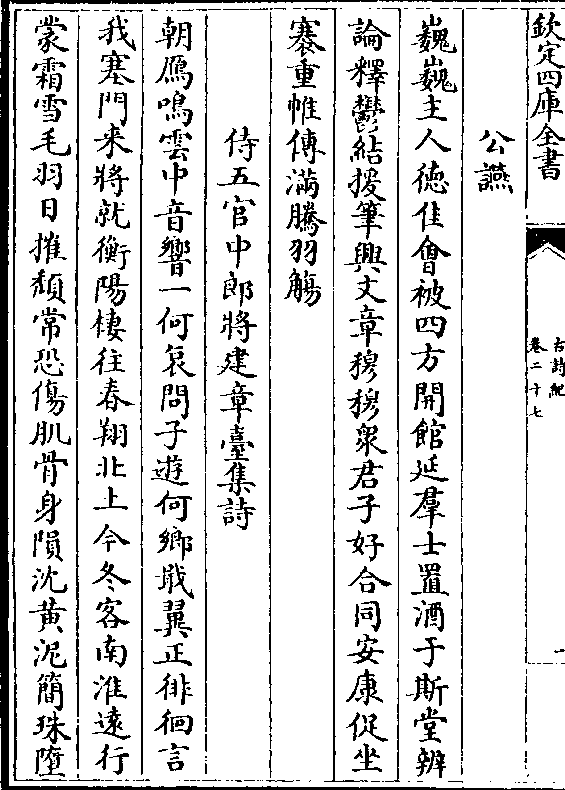 欽定四庫全書
古詩紀
卷二十七
一
公讌
巍巍主人德佳會被四方開館延羣士置酒于斯堂辨
論釋鬱結援筆興文章穆穆衆君子好合同安康促坐
褰重帷傳滿騰羽觴
侍五官中郎將建章臺集詩
朝鴈鳴雲中音響一何哀問子遊何鄉戢翼正徘徊言
我塞門来將就衡陽棲往春翔北土今冬客南淮遠行
蒙霜雪毛羽日摧頽常恐傷肌骨身隕沈黄泥簡珠墮